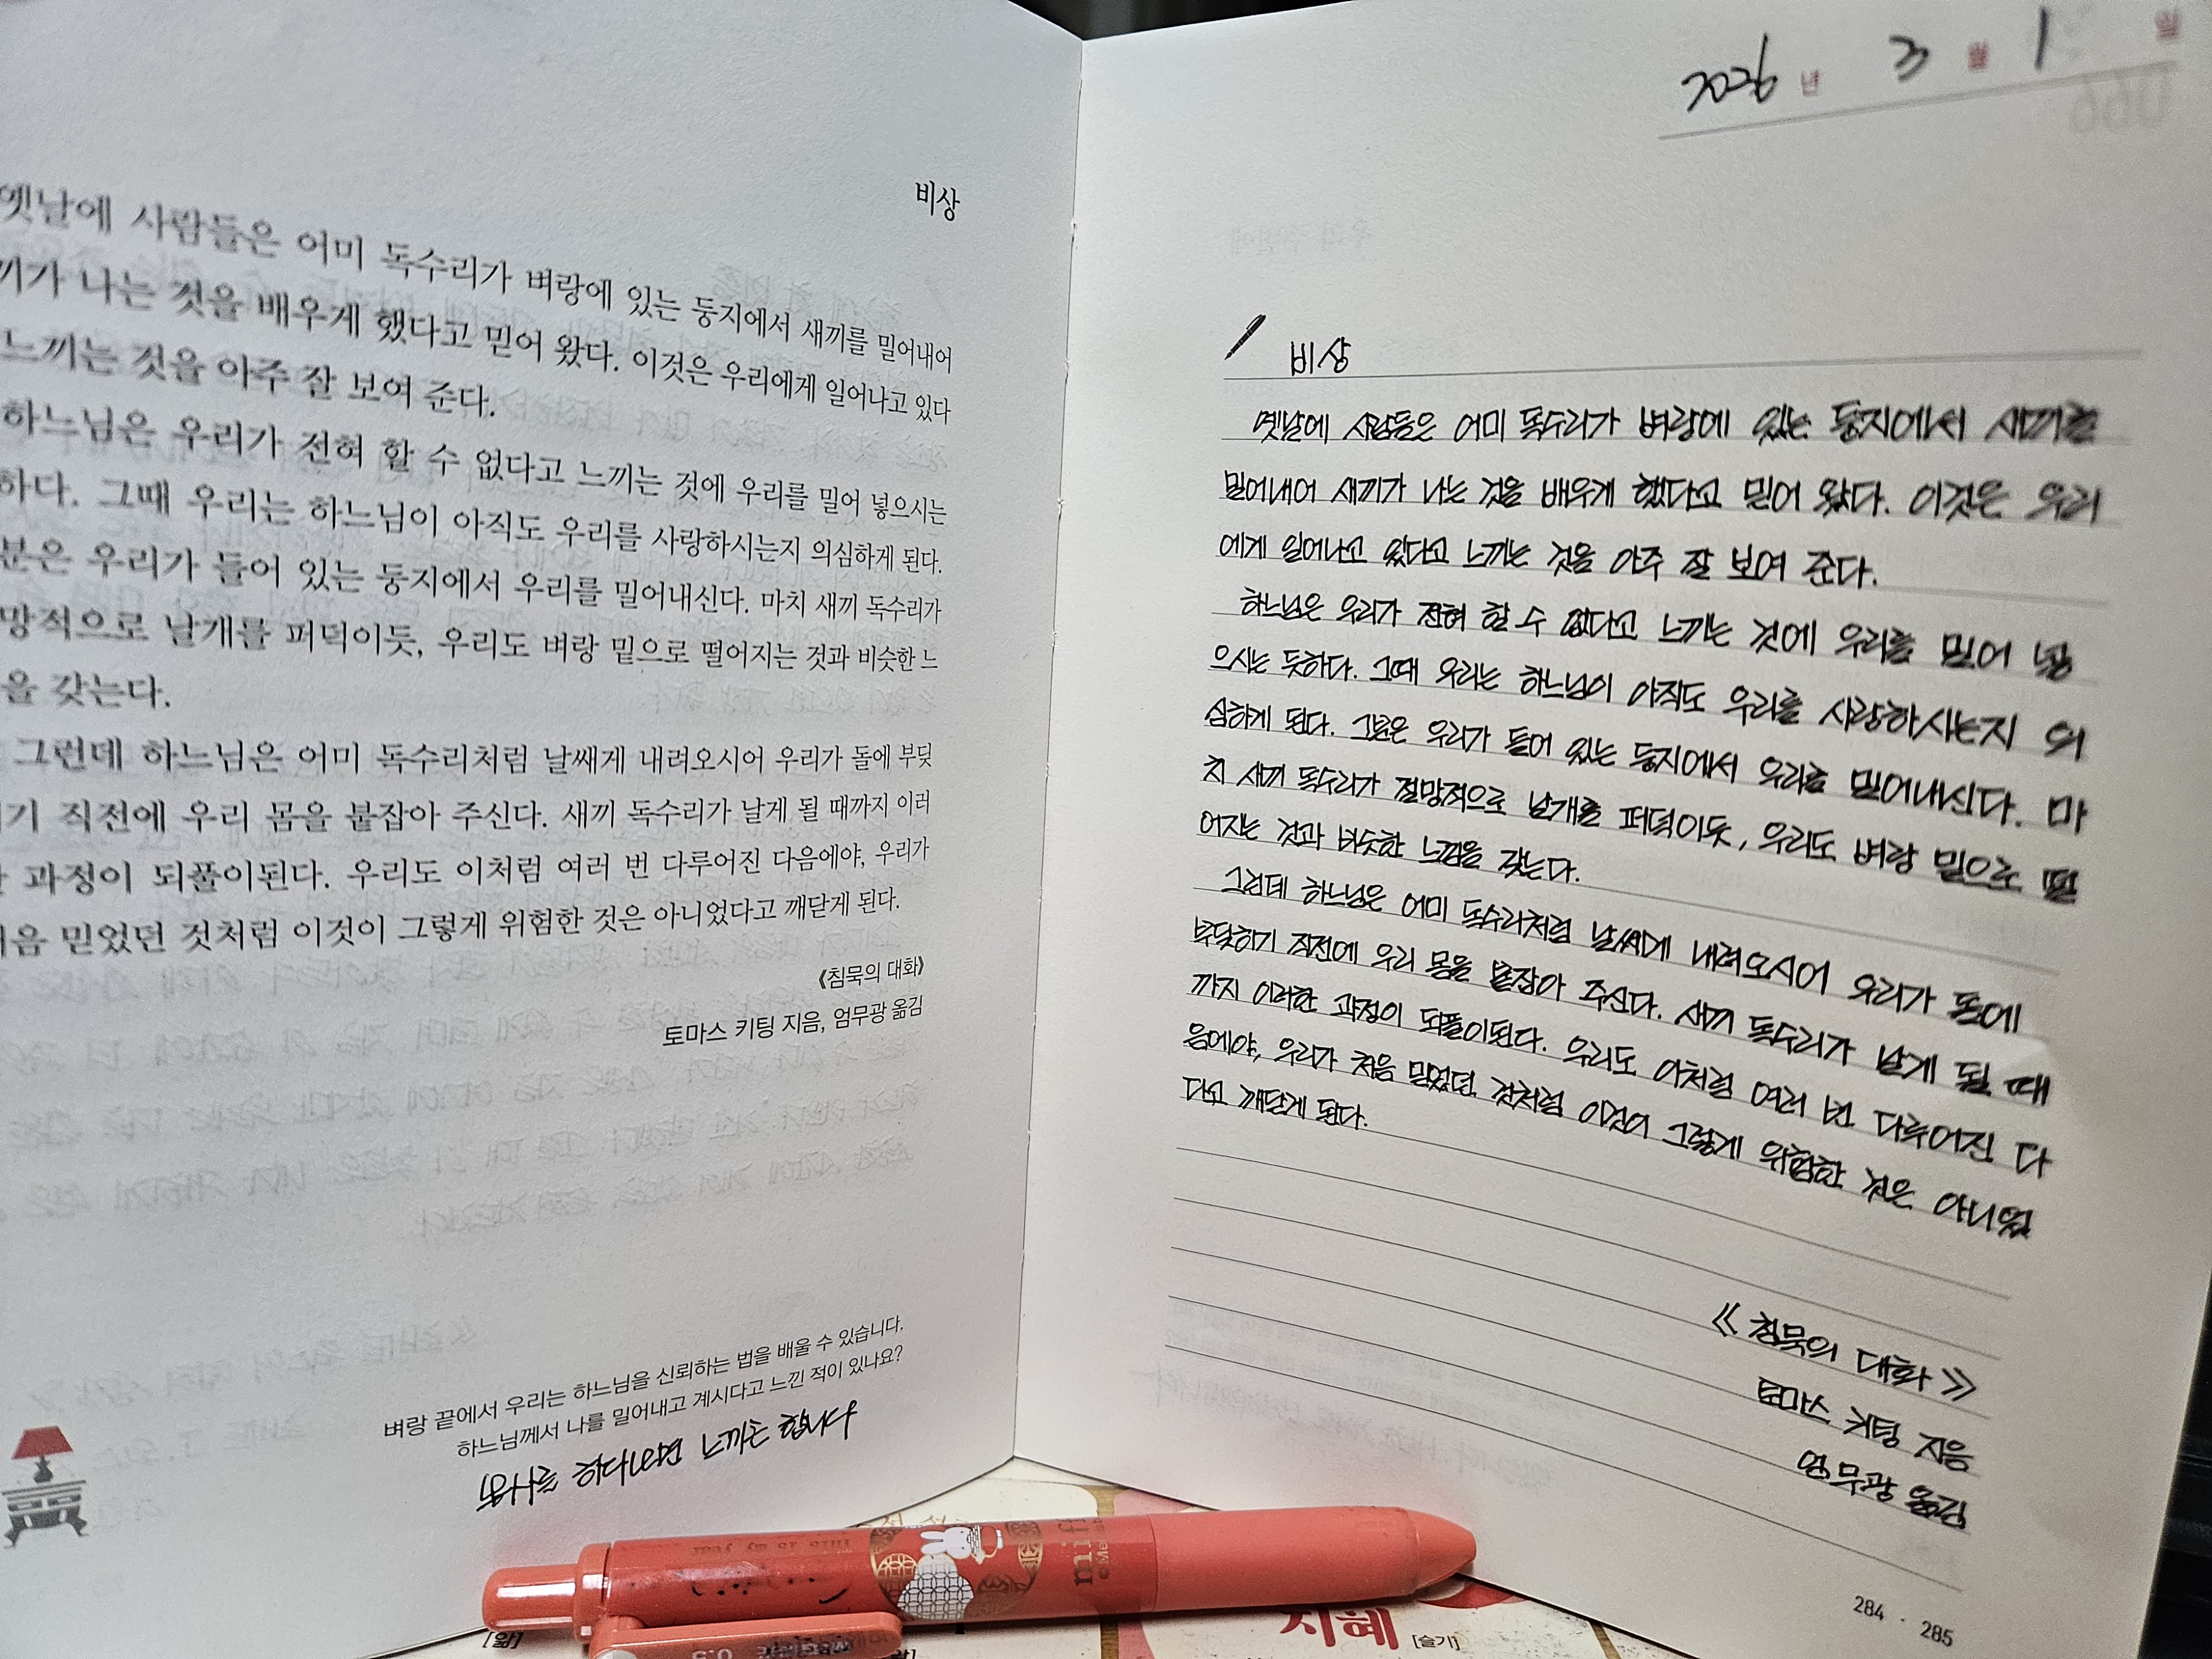 비상
옛날에 사람들은 어미 독수리가 벼랑에 있는 둥지에서 새끼를 밀어내어
끼가 나는 것을 배우게 했다고 믿어 왔다. 이것은 우리에게 일어나고 있다
느끼는 것을 아주 잘 보여 준다.
하느님은 우리가 전혀 할 수 없다고 느끼는 것에 우리를 밀어 넣으시는
하다. 그때 우리는 하느님이 아직도 우리를 사랑하시는지 의심하게 된다.
분은 우리가 들어 있는 둥지에서 우리를 밀어내신다. 마치 새끼 독수리가
망적으로 날개를 퍼덕이듯, 우리도 벼랑 밑으로 떨어지는 것과 비슷한 느
을 갖는다.
그런데 하느님은 어미 독수리처럼 날쌔게 내려오시어 우리가 돌에 부딪
기 직전에 우리 몸을 붙잡아 주신다. 새끼 독수리가 날게 될 때까지 이러
과정이 되풀이된다. 우리도 이처럼 여러 번 다루어진 다음에야, 우리가
음 믿었던 것처럼 이것이 그렇게 위험한 것은 아니었다고 깨닫게 된다.
《침묵의 대화》
토마스 키팅 지음, 엄무광 옮김
벼랑 끝에서 우리는 하느님을 신뢰하는 법을 배울 수 있습니다.
하느님께서 나를 밀어내고 계시다고 느낀 적이 있나요?
2026 년 3 월 1 일
비상
옛날에 사람들은 어미 독수리가 벼랑에 있는 둥지에서 새끼를
밀어내어 새끼가 나는 것을 배우게 했다고 믿어 왔다. 이것은 우리
에게 일어나고 있다고 느끼는 것을 아주 잘 보여 준다.
하느님은 우리가 전혀 할 수 없다고 느끼는 것에 우리를 밀어 넣
으시는 듯하다. 그때 우리는 하느님이 아직도 우리를 사랑하시는지 의
심하게 된다. 그분은 우리가 들어 있는 둥지에서 우리를 밀어내신다. 마
치 새끼 독수리가 절망적으로 날개를 퍼덕이듯, 우리도 벼랑 밑으로 떨
어지는 것과 비슷한 느낌을 갖는다.
그런데 하느님은 어미 독수리처럼 날쌔게 내려오시어 우리가 돌에
부딪하기 직전에 우리 몸을 붙잡아 주신다. 새끼 독수리가 날게 될 때
까지 이러한 과정이 되풀이된다. 우리도 이처럼 여러 번 다루어진 다
음에야, 우리가 처음 믿었던 것처럼 이것이 그렇게 위험한 것은 아니었
다고 깨닫게 된다.
《침묵의 대화》
토마스 키팅 지음
엄무광 옮김
284 · 285
This is my year
miff
0.5
[앎]
지혜 [슬기]